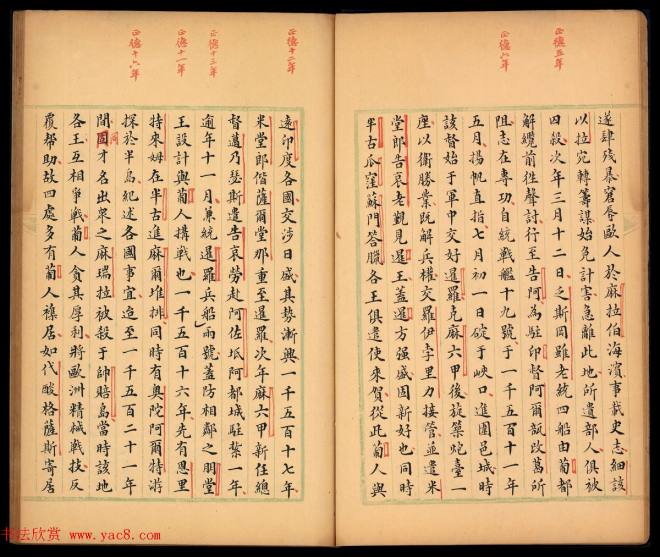 正德五年
正德六年
遂肆殘暴窘辱歐人於麻拉伯海濱事載史志細該
以拉宛轉籌謀始免計害急離此地所遣部人俱被
四殺次年三月十二日乏斯岡雖老統四船由葡都
解纜前徃聲討行至告阿為駐印督阿爾瓿改葛所
阻志在專功自統戰艦十九號于一千五百十一年
五月揚帆直指七月初一日碇于峽口進圍邑城時
該督始于軍中交好暹羅克麻六甲後旋築垞臺一
座以衛勝業旣解兵權交羅伊李里力接管並遣米
堂郎告哀老覲見暹王蓋暹方强盛固新好也同時
半古瓜窪蘇門答臘各王俱遣使來賀從此葡人與
正德十二年
正德十三年
正德十一年
正德十六年
遠印度各國交涉日盛其勢漸興一千五百十七年
米堂郎偕薩爾堂那重至暹羅次年麻六甲新任總
督薖乃瑟斯遣告哀勞赴阿佐坻阿都城駐紮一年
逾年十一月兼統暹羅兵船兩號蓋防相鄰之朋堂
王設計與葡人搆戰也一千五百十六年先有恩里
特來姆在半古進麻爾堆排同時有奥陀阿爾特游
探於半島紀述各國事宜迨至一千五百二十一年
間國才名出衆之麻瑞拉被殺于師賠島當時該地
同
各王互相爭戰葡人貪其厚利將歐洲精械戰技反
覆帮助故四處多有葡人襍居如代酸格薩斯寄居
书法欣赏 www.yac8.com